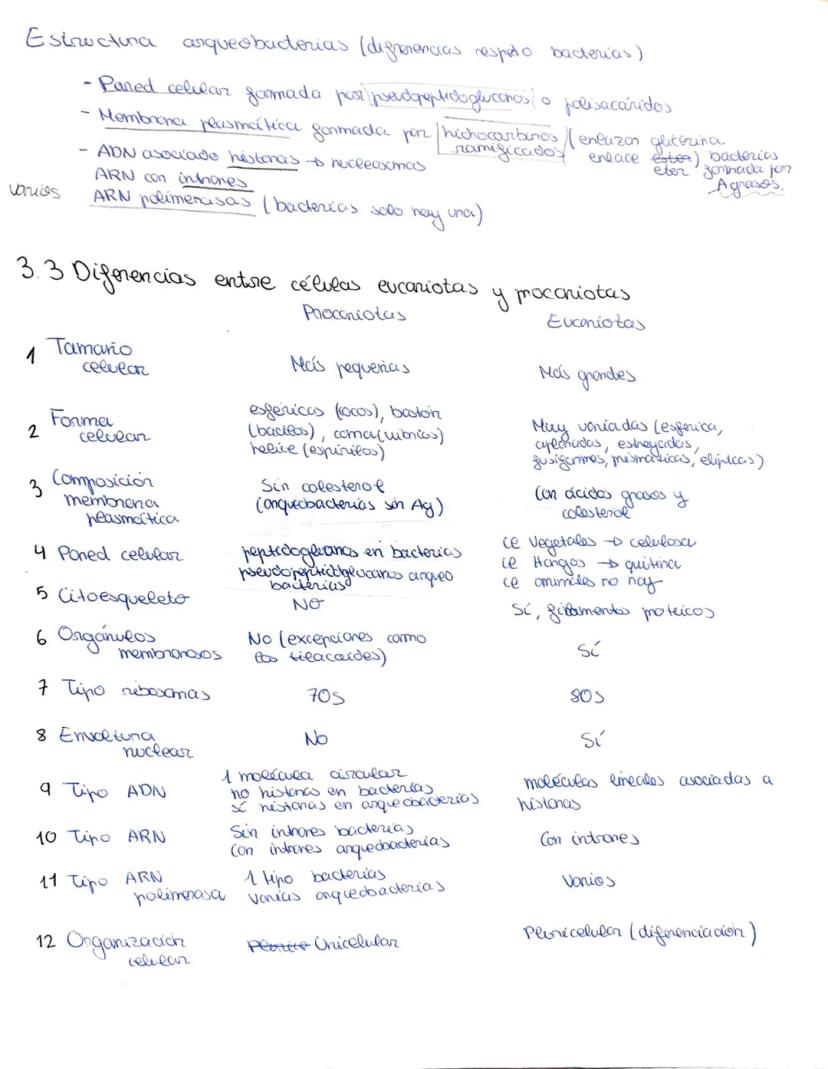 Estructura arqueobacterias (diferencias respeto bacterias)
- Pared celular formada por pseudopeptidoglucanos o polisacáridos
- Membrana plasmática formada por hidrocarburos ramificados (enlazan glicerina enlace ester eter) bacterias formada por Agrasos.
- ADN asociado histonas → nucleosomas
ARN con intrones
varias ARN polimerasas (bacterias solo hay una)
3.3 Diferencias entre células eucariotas y procariotas
Procariotas Eucariotas
1 Tamaño celular Más pequeñas Más grandes
2 Forma celular esféricas (cocos), bastón (bacilos), coma (vibrios) helice (espirilos) Muy variadas (esférica, aplanadas, estrelladas, fusiformes, prismáticas, elípticas)
3 Composición membrana plasmática Sin colesterol (arqueobacterias sin Ag) Con ácidos grasos y colesterol
4 Pared celular peptidoglucanos en bacterias pseudopeptidoglucanos arqueo bacterias ce Vegetales → celulosa
ce Hongos → quitina
ce animales no hay
5 Citoesqueleto NO Sí, filamentos proteicos
6 Orgánulos membranosos No (excepciones como los tilacoides) Sí
7 Tipo ribosomas 70S 80S
8 Envoltura nuclear No Sí
9 Tipo ADN 1 molécula circular
no histonas en bacterias
sí histonas en arqueobacterias moléculas lineales asociadas a histonas
10 Tipo ARN Sin intrones bacterias
Con intrones arqueobacterias Con intrones
11 Tipo ARN polimerasa 1 tipo bacterias
varias arqueobacterias Varios
12 Organización celular Unicelular Pluricelular (diferenciación)